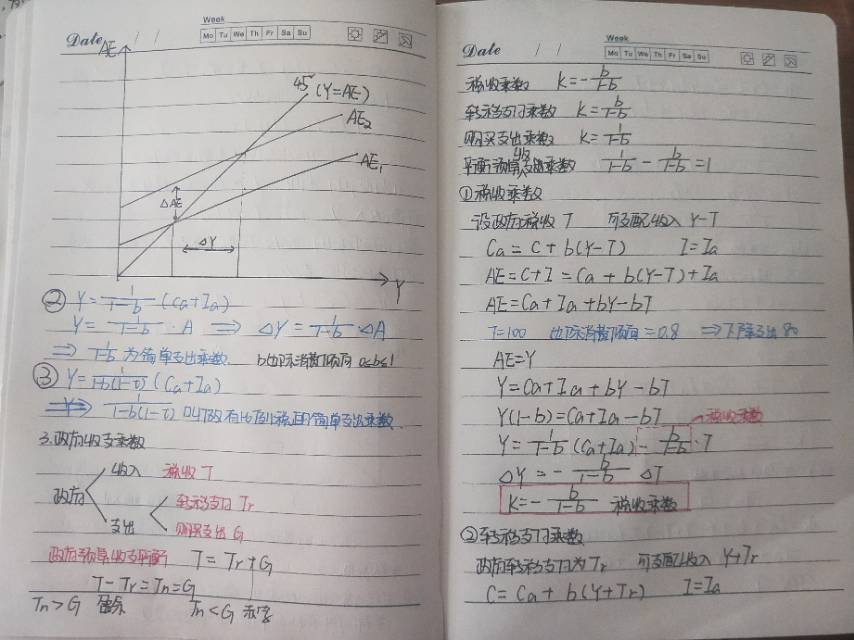 Week
Date / /
Mo Tu We Th Fr Sa Su
AE
45° (Y=AE)
AE₂
AE₁
△AE
△Y
Y
② Y = 1/(1-b) (Ca+Ia)
Y = 1/(1-b) · A ⇒ △Y = 1/(1-b) · △A
⇒ 1/(1-b) 为简单支出乘数. b边际消费倾向 0≤b≤1
③ Y = 1/(1-b(1-t)) (Ca+Ia)
⇒ 1/(1-b(1-t)) 简单支出乘数
3.政府收支乘数
政府
收入 税收 T
支出
转移支付 Tr
购买支出 G
政府预算收支平衡 T = Tr+G
T-Tr=Tn=G
Tn>G 盈余 Tn<G 赤字
Week
Date / /
Mo Tu We Th Fr Sa Su
税收乘数 K=-b/(1-b)
转移支付乘数 K=b/(1-b)
购买支出乘数 K=1/(1-b)
平衡预算收支乘数 1/(1-b) - b/(1-b) =1
①税收乘数
设政府税收 T 可支配收入 Y-T
Ca = C + b(Y-T) I=Ia
AE=C+I = Ca + b(Y-T)+Ia
AE=Ca+Ia+bY-bT
T=100 边际消费倾向=0.8 ⇒下降支出80
AE=Y
Y=Ca+Ia+bY-bT
Y(1-b)=Ca+Ia-bT
→税收乘数
Y = 1/(1-b) (Ca+Ia) - b/(1-b) · T
△Y = - b/(1-b) △T
K=- b/(1-b) 税收乘数
②转移支付乘数
政府转移支付为Tr 可支配收入 Y+Tr
C = Ca + b(Y+Tr) I=Ia